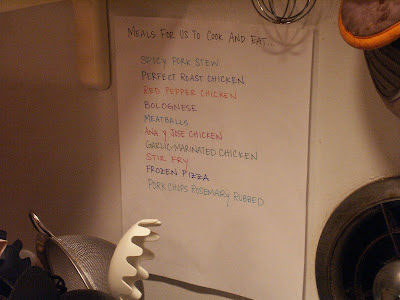 MEALS FOR US TO COOK AND EAT..
SPICY PORK STEW
PERFECT ROAST CHICKEN
RED PEPPER CHICKEN
BOLOGNESE
MEATBALLS
ANA Y JOSE CHICKEN
GARLIC-MARINATED CHICKEN
STIR FRY
FROZEN PIZZA
PORK CHOPS ROSEMARY RUBBED